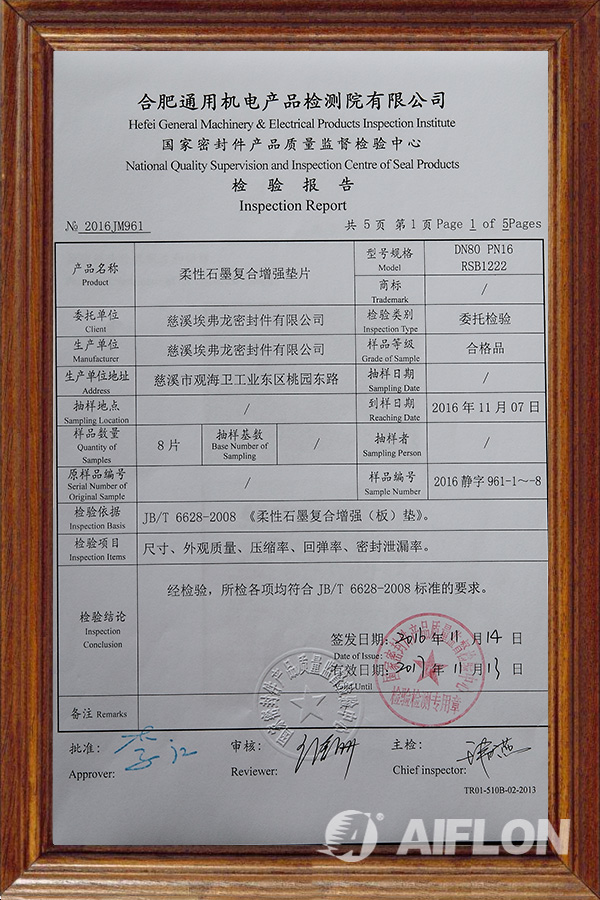 合肥通用机电产品检测院有限公司
Hefei General Machinery & Electrical Products Inspection Institute
国家密封件产品质量监督检验中心
National Quality Supervision and Inspection Centre of Seal Products
检 验 报 告
Inspection Report
№ 2016JM961 共 5 页 第 1 页 Page 1 of 5Pages
产品名称 Product 柔性石墨复合增强垫片 型号规格 Model DN80 PN16 RSB1222
商标 Trademark /
委托单位 Client 慈溪埃弗龙密封件有限公司 检验类别 Inspection Type 委托检验
生产单位 Manufacturer 慈溪埃弗龙密封件有限公司 样品等级 Grade of Sample 合格品
生产单位地址 Address 慈溪市观海卫工业东区桃园东路 抽样日期 Sampling Date /
抽样地点 Sampling Location / 到样日期 Reaching Date 2016 年 11 月 07 日
样品数量 Quantity of Samples 8 片 抽样基数 Base Number of Sampling / 抽样者 Sampling Person /
原样品编号 Serial Number of Original Sample / 样品编号 Sample Number 2016 静字 961-1～-8
检验依据 Inspection Basis JB/T 6628-2008 《柔性石墨复合增强（板）垫》。
检验项目 Inspection Items 尺寸、外观质量、压缩率、回弹率、密封泄漏率。
检验结论 Inspection Conclusion 经检验，所检各项均符合 JB/T 6628-2008 标准的要求。
签发日期：2016 年 11 月 14 日
Date of Issue:
有效日期：2017 年 11 月 13 日
Valid Until
国家密封件产品质量监督检验中心
检验检测专用章
国家密封件产品质量监督检验中心
备注 Remarks
批准： 审核： 主检：
Approver: Reviewer: Chief inspector:
TR01-510B-02-2013
AIFLON